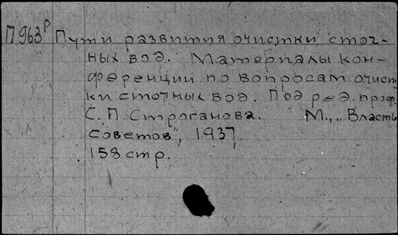 П963р Пути развития очистки сточ-
ных вод. Материалы кон-
ференции по вопросам очист
ки сточных вод. Под ред. проф.
С.П. Строганова. М., „Власть
советов", 1937
158 стр.